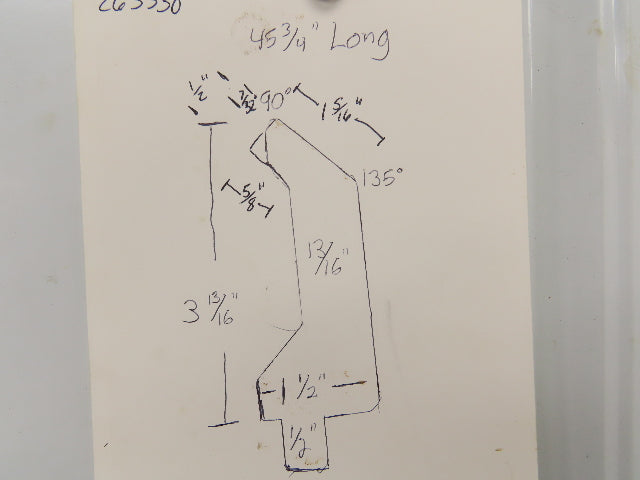 263330
45 3/4" Long
1/2"
7/32"
90°
1 5/16"
135°
5/8"
13/16"
3 13/16"
1 1/2"
1/2"